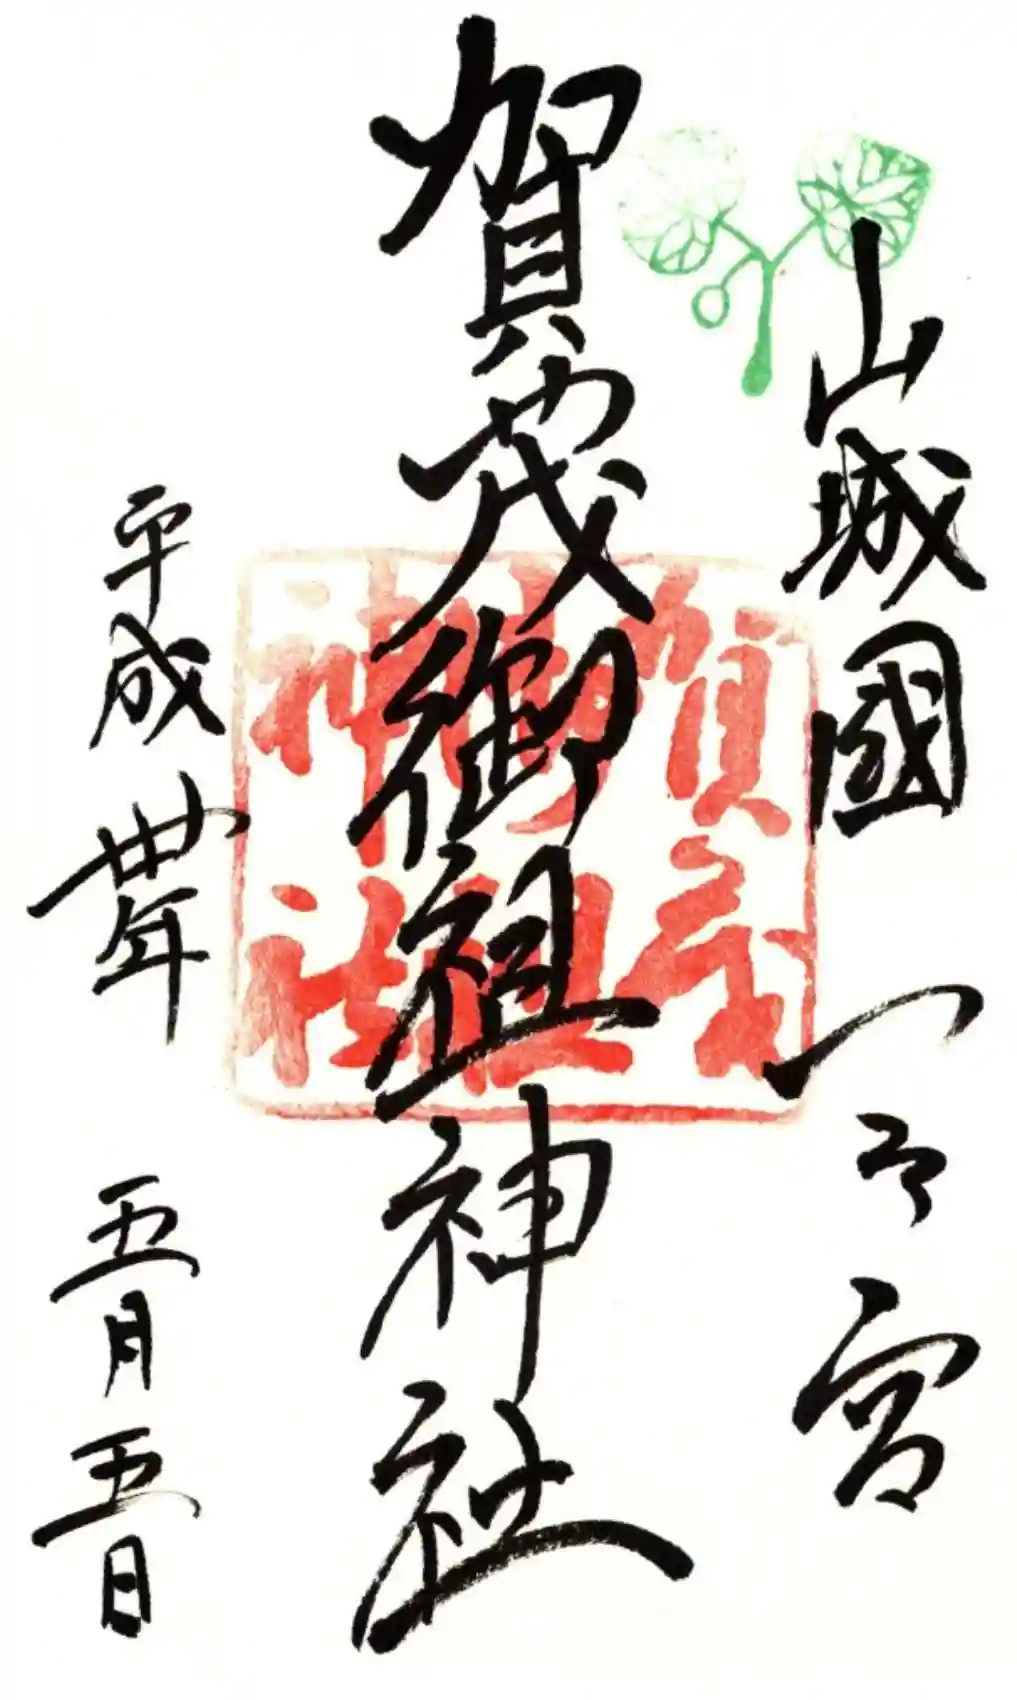 山城國一之宮
賀茂御祖神社
平成丗年五月五日
賀茂
御祖
神社